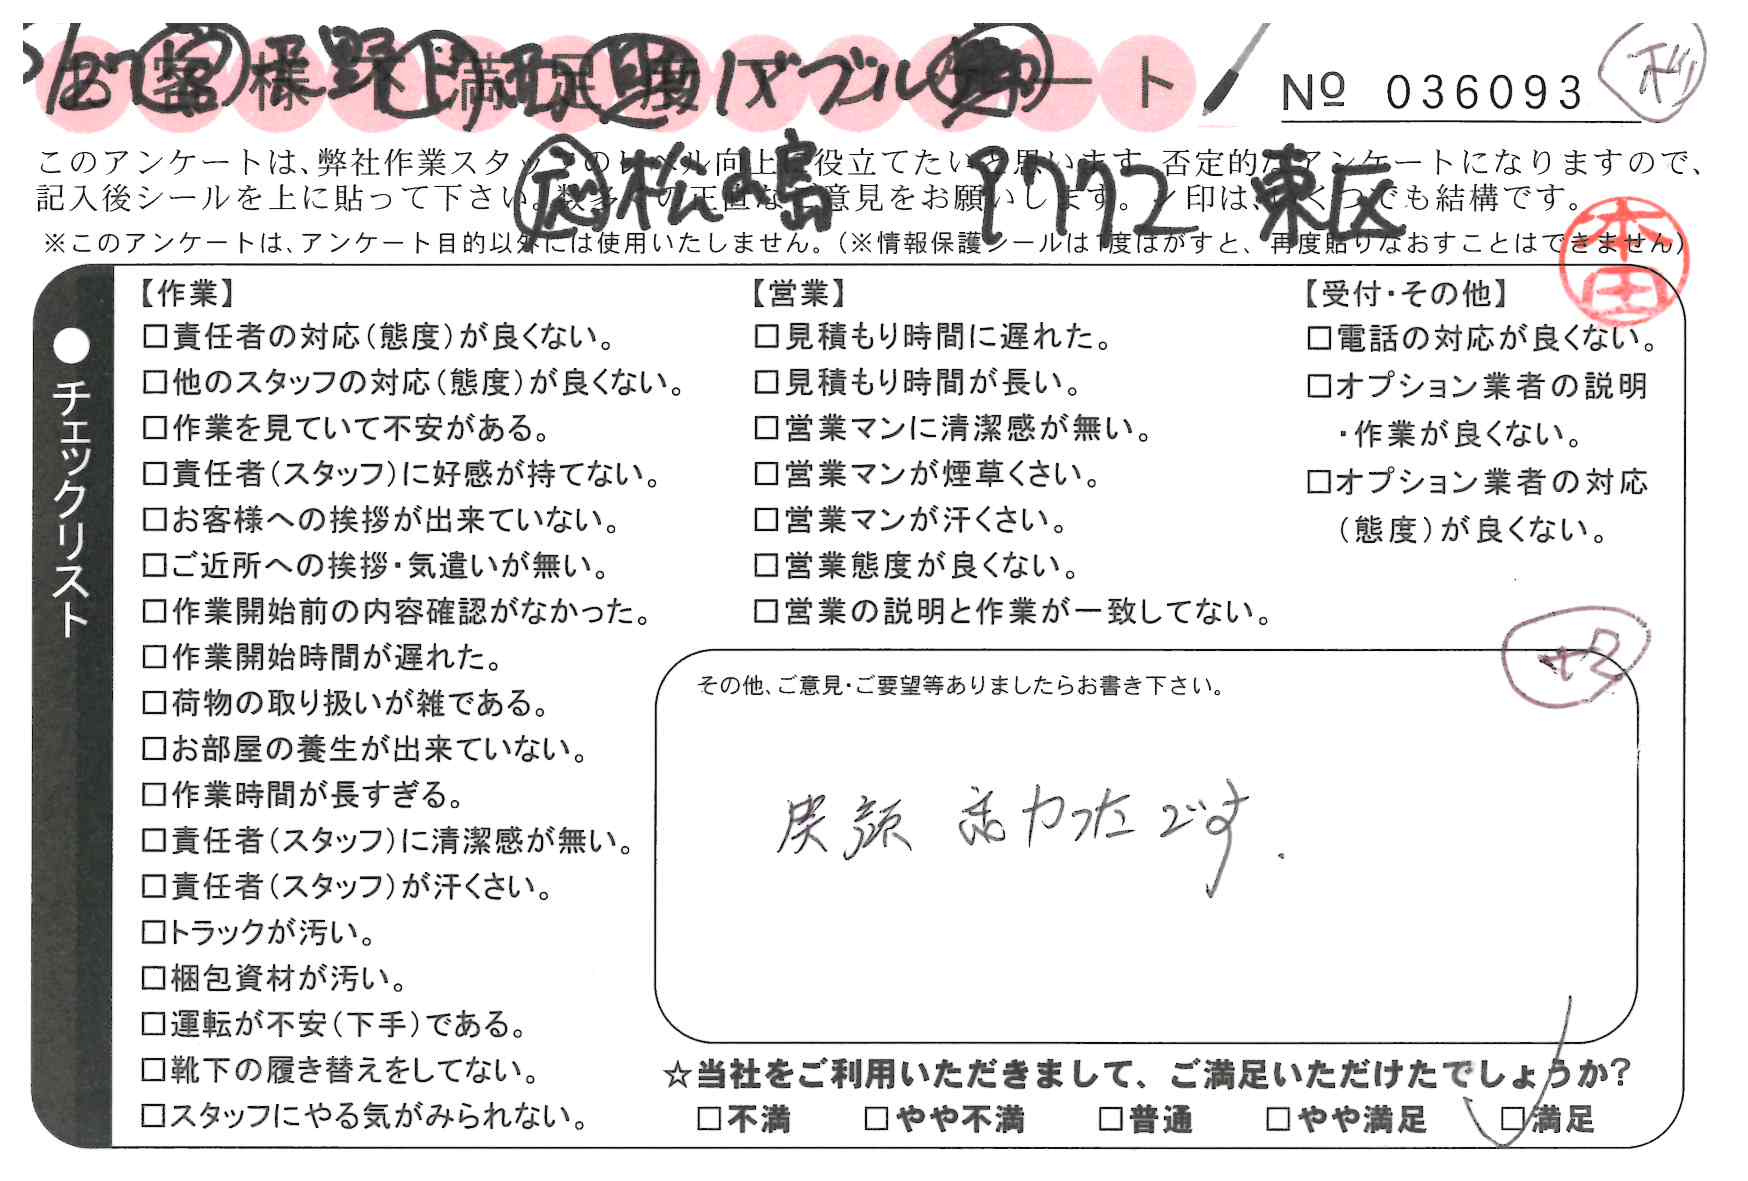 お客様不満足度アンケート
№ 036093
このアンケートは、弊社作業スタッフのレベル向上に役立てたいと思います。否定的なアンケートになりますので、
記入後シールを上に貼って下さい。数多くの正直なご意見をお願いします。✓印は、いくつでも結構です。
※このアンケートは、アンケート目的以外には使用いたしません。(※情報保護シールは1度はがすと、再度貼りなおすことはできません)
松島 1772 東区
本田
●チェックリスト
【作業】
□責任者の対応(態度)が良くない。
□他のスタッフの対応(態度)が良くない。
□作業を見ていて不安がある。
□責任者(スタッフ)に好感が持てない。
□お客様への挨拶が出来ていない。
□ご近所への挨拶・気遣いが無い。
□作業開始前の内容確認がなかった。
□作業開始時間が遅れた。
□荷物の取り扱いが雑である。
□お部屋の養生が出来ていない。
□作業時間が長すぎる。
□責任者(スタッフ)に清潔感が無い。
□責任者(スタッフ)が汗くさい。
□トラックが汚い。
□梱包資材が汚い。
□運転が不安(下手)である。
□靴下の履き替えをしてない。
□スタッフにやる気がみられない。
【営業】
□見積もり時間に遅れた。
□見積もり時間が長い。
□営業マンに清潔感が無い。
□営業マンが煙草くさい。
□営業マンが汗くさい。
□営業態度が良くない。
□営業の説明と作業が一致してない。
【受付・その他】
□電話の対応が良くない。
□オプション業者の説明
・作業が良くない。
□オプション業者の対応
(態度)が良くない。
その他、ご意見・ご要望等ありましたらお書き下さい。
笑顔 良かったです.
☆当社をご利用いただきまして、ご満足いただけたでしょうか?
□不満 □やや不満 □普通 □やや満足 □満足